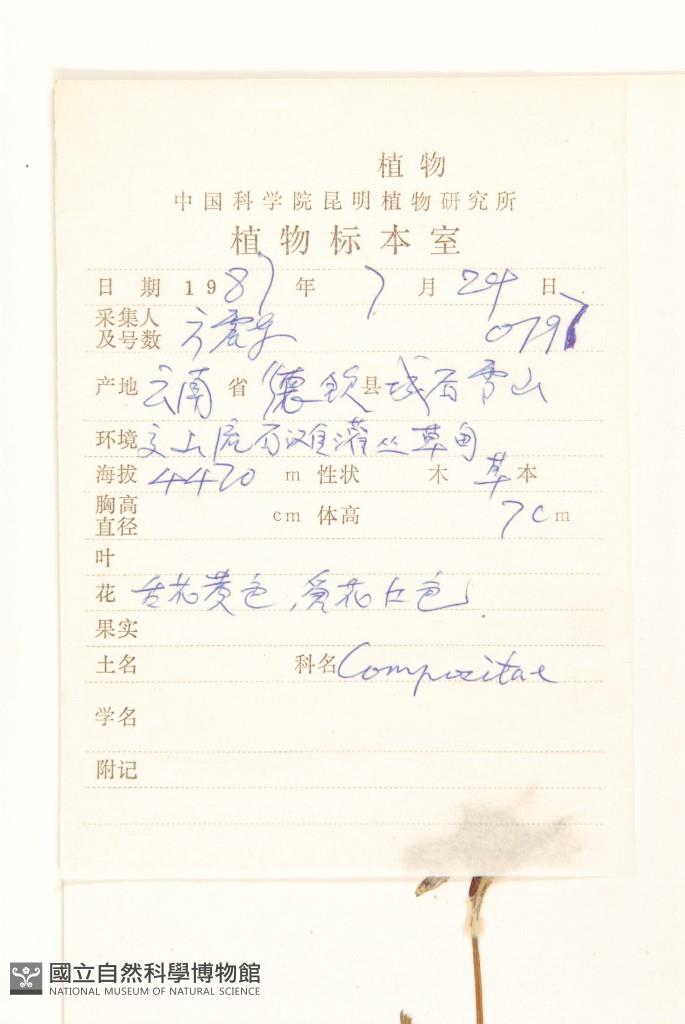 植物
中国科学院昆明植物研究所
植物标本室
日期 1987年 7月 24日
采集人
及号数 方震东 079
产地 云南 省 德钦 县 城后雪山
环境 文山底石滩灌丛草甸
海拔 4470 m 性状 木 草本
胸高
直径 cm 体高 7cm
叶
花 舌花黄色,筒花红色
果实
土名 科名 Compositae
学名
附记
國立自然科學博物館
NATIONAL MUSEUM OF NATURAL SCIENCE